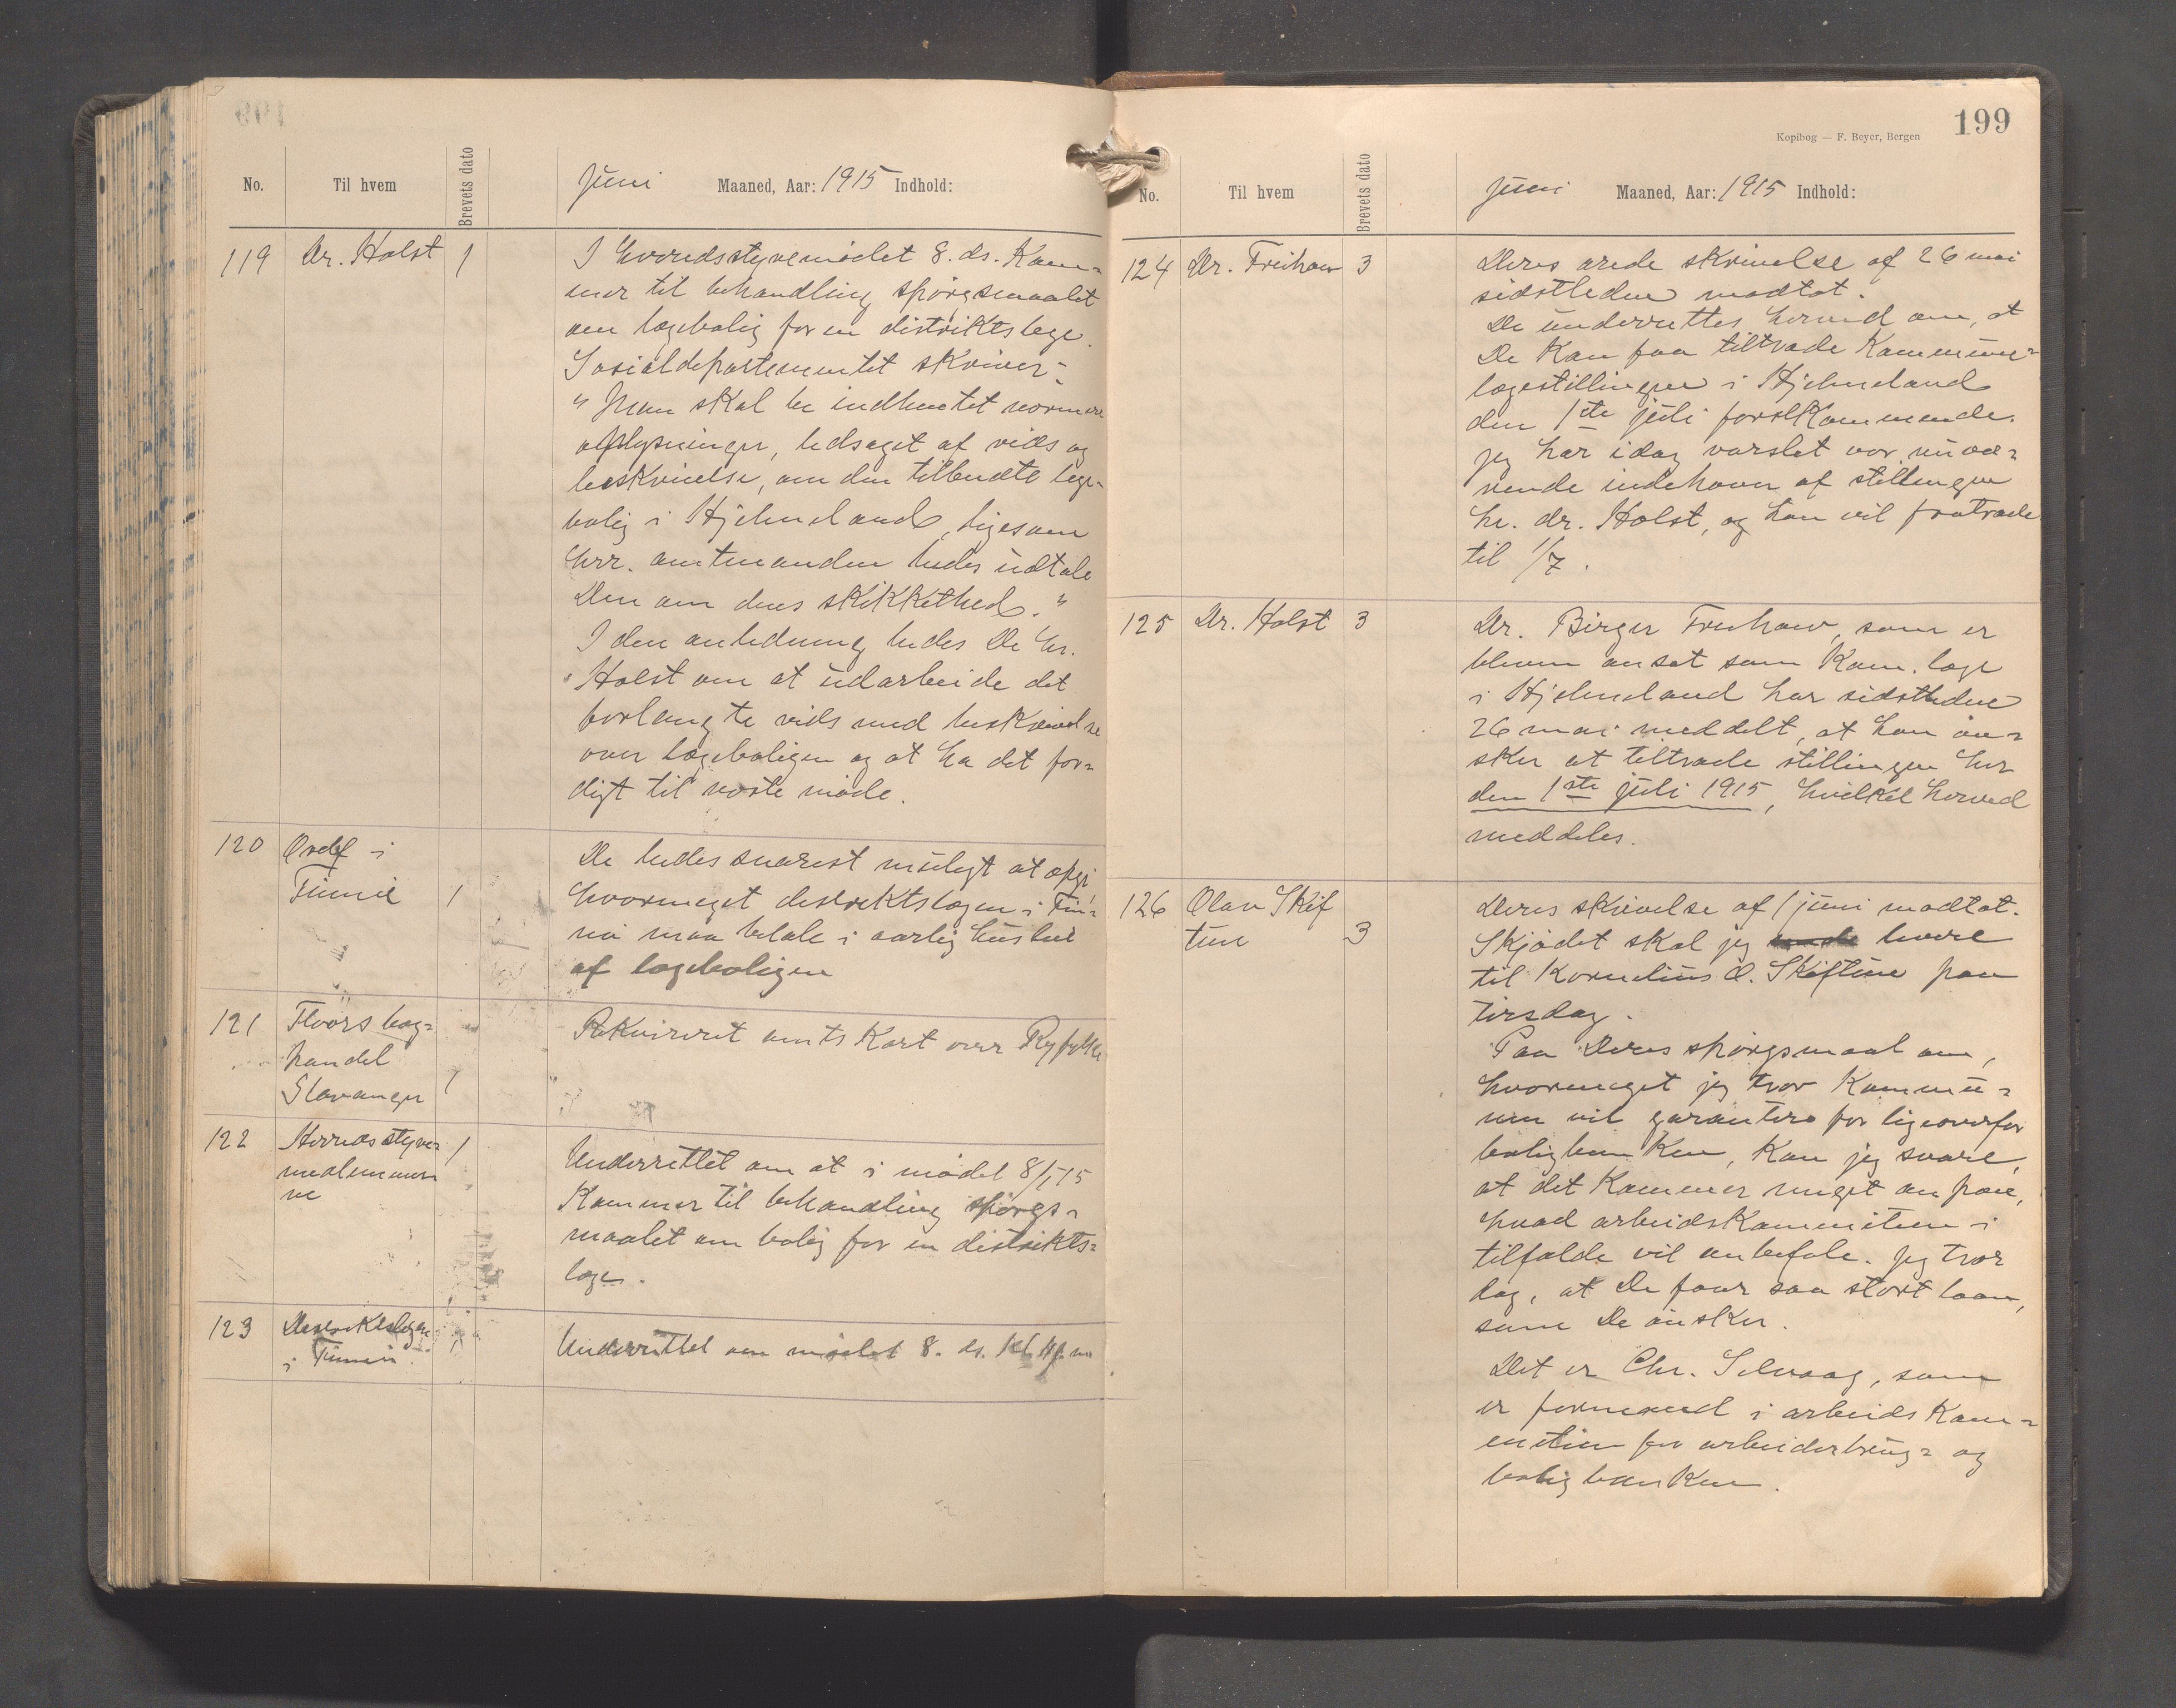 No. Til hvem Brevets dato Juni Maaned, Aar: 1915 Indhold:
119 Dr. Holst 1 I herredsstyremødet 8. ds. Kom-
mer til behandling spørgsmaalet
om lægebolig for en distriktslæge.
Sosialdepartementet skriver:
"Man skal be indhentet nærmere
oplysninger, ledsaget af rids og
beskrivelse, om den tilbudte læge-
bolig i Hjelmeland, ligesom
Hrr. amtmanden bedes udtale
Dem om dens skikkethed."
I den anledning bedes De hr.
Holst om at udarbeide det
forlangte rids med beskrivelse
over lægeboligen og at ha det fær-
digt til næste møde.
120 Ordf i
Finnø 1
De bedes snarest muligt at opgi
hvormeget distriktslægen i Fin-
nø maa betale i aarlig husleie
af lægeboligen
121 Floors bog-
handel
Stavanger 1
Rekvireret amtskart over Ryfylke
122 Herredsstyre-
medlemmer
ne
1
Underrettet om at i mødet 8/6 15
Kommer til behandling spørgs-
maalet om bolig for en distrikts-
læge.
123 Distriktslægen
i Finnø 1
Underrettet om mødet 8. ds. Kl.
199
Kopibog — F. Beyer, Bergen
No. Til hvem Brevets dato Juni Maaned, Aar: 1915 Indhold:
124 Dr. Freihow 3 Deres ærede skrivelse af 26 mai
sidstleden modtat.
De underrettes herved om, at
De kan faa tiltræde Kommune-
lægestillingen i Hjelmeland
den 1ste juli førstkommende.
Jeg har idag varslet vor nuvæ-
rende indehaver af stillingen
hr. dr. Holst, og han vil fratræde
til 1/7.
125 Dr. Holst 3 Dr. Birger Freihow, som er
bleven ansat som Kom. læge
i Hjelmeland har sidstleden
26 mai meddelt, at han øn-
sker at tiltræde stillingen her
den 1ste juli 1915, hvilket herved
meddeles.
126 Olav Skif
tun 3
Deres skrivelse af 1 juni modtat.
Skjødet skal jeg levere
til Kornelius O. Skiftun paa
tirsdag.
Paa Deres spørgsmaal om,
hvormeget jeg tror Kommu-
nen vil garantere for ligeoverfor
boligbanken, kan jeg svare,
at det kommer meget an paa,
hvad arbeidskommiteen i
tilfælde vil anbefale. Jeg tror
dog, at De faar saa stort laan,
som De ønsker.
Det er Chr. Selvaag, som
er formand i arbeidskom-
miteen for arbeiderbrug- og
boligbanken.